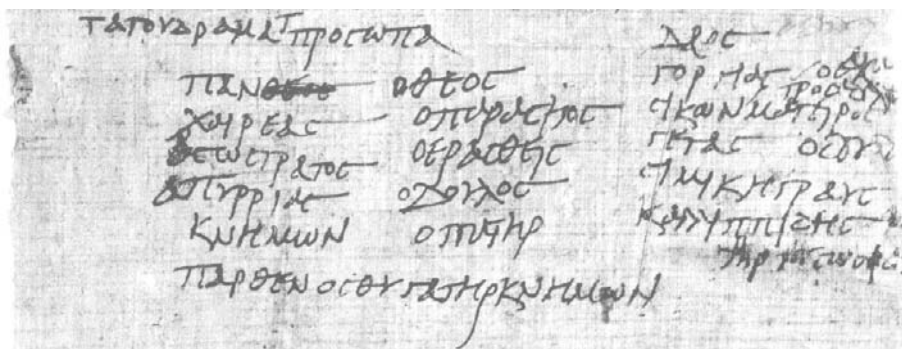 ΤΑ ΤΟΥ ΔΡΑΜΑΤ ΠΡΟϹΩΠΑ
ΠΑΝ Ο ΘΕΟϹ
ΧΑΙΡΕΑϹ Ο ΠΑΡΑϹΙΤΟϹ
ϹΩϹΤΡΑΤΟϹ Ο ΕΡΑϹΘΕΙϹ
ΠΥΡΡΙΑϹ Ο ΔΟΥΛΟϹ
ΚΝΗΜΩΝ Ο ΠΑΤΗΡ
ΠΑΡΘΕΝΟϹ ΘΥΓΑΤΗΡ ΚΝΗΜΩΝ
ΔΑΟϹ
ΓΟΡΓΙΑϹ
ϹΙΚΩΝ ΜΑΓΙΡΟϹ
ΓΕΤΑϹ Ο ΔΟΥ
ϹΙΜΙΚΗ ΓΡΑΥϹ
ΚΑΛΛΙΠΠΙΔΗϹ